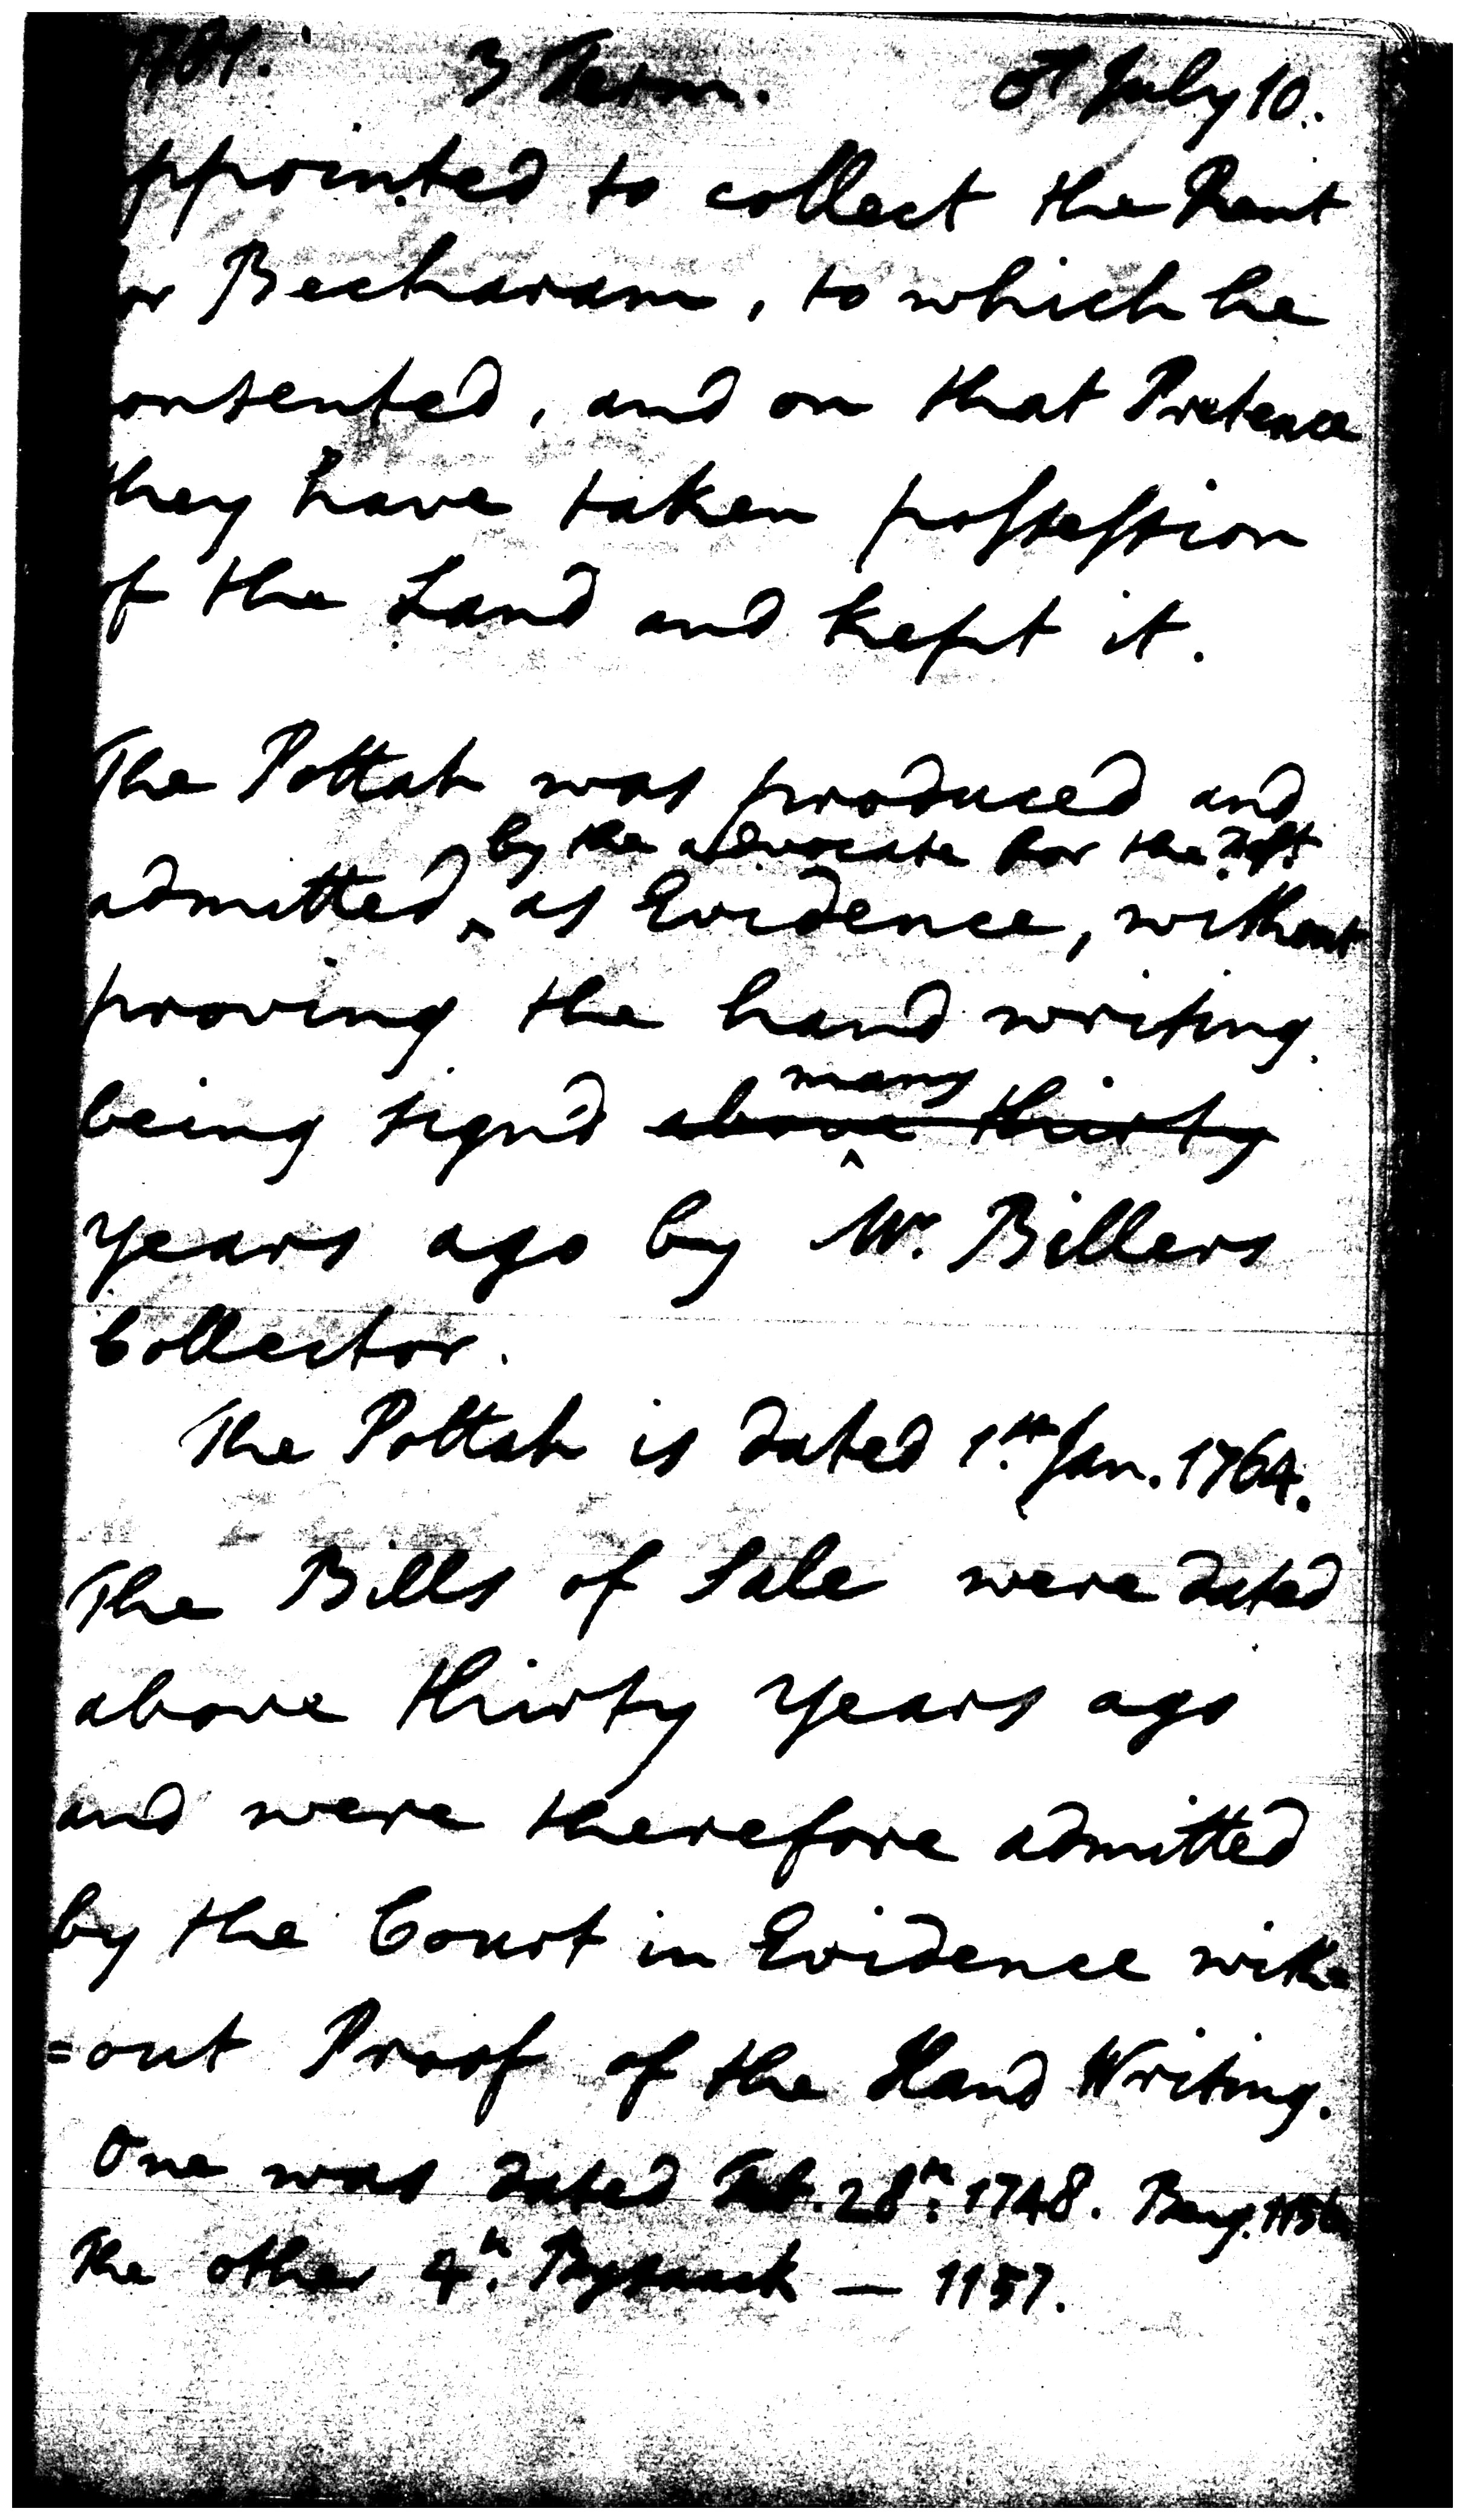 1781. 3 Term. ♂ July 10.
ppointed to collect the Rent
or Becharam, to which he
onsented, and on that Pretence
they have taken possession
of the Land and kept it.
The Pottah was produced and
by the advocate for the Deft
admitted ^ as Evidence, without
proving the hand writing.
many
being sign'd above thirty
years ago by Mr. Billers
Collector.
The Pottah is dated 1st Jan. 1764.
The Bills of Sale were dated
above thirty years ago
and were therefore admitted
by the Court in Evidence with=
=out Proof of the Hand Writing.
One was dated Feb. 28th. 1748. Beng. 1156
The other 4th. Bysaack — 1157.